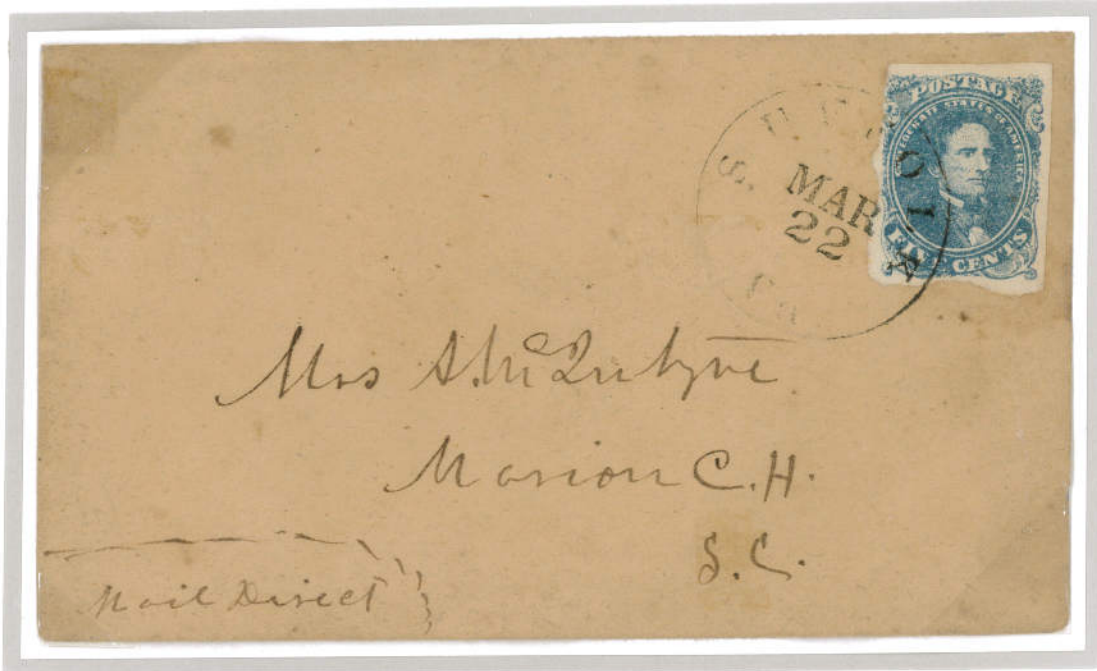 POSTAGE
CONFEDERATE STATES OF AMERICA
FIVE CENTS
MAR
22
Mrs A. McIntyre
Marion C.H.
S.C.
Mail Direct